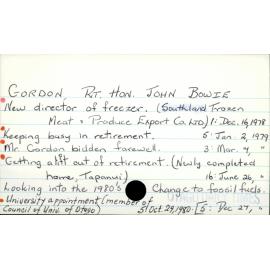 GORDON, RT. HON. JOHN BOWIE
New director of freezer. (Southland Frozen
Meat & Produce Export Co. LTD) 1: Dec. 16, 1978
Keeping busy in retirement. 5: Jan 2, 1979
Mr. Gordon bidden farewell. 3: Mar. 7, "
Getting a lift out of retirement. (Newly completed
home, Tapanui) 16: June 26, "
Looking into the 1980's Change to fossil fuels.
University appointment (member of
Council of Univ. of Otago) 5: Oct 29, 1980. 5: Dec 27, "